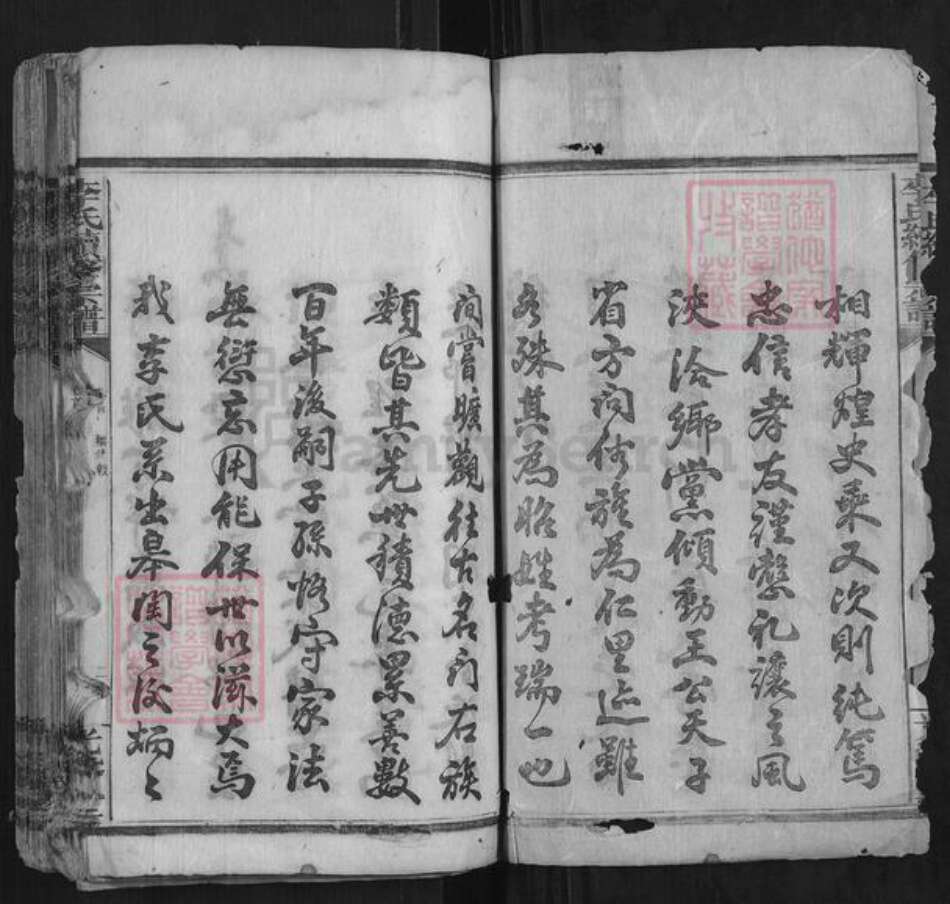 相輝煌史乘又次則純篤
忠信孝友謹愨礼讓之風
浹洽鄉黨傾動王公天子
省方问俗旌為仁里迹雖
各殊其為昭姓考瑞一也
间嘗曠觀往古名门右族
類皆其先世積德累善數
百年後嗣子孫恪守家法
無愆忘用能保世以滋大焉
我李氏系出皋陶之後炳〻
李氏續修宗譜